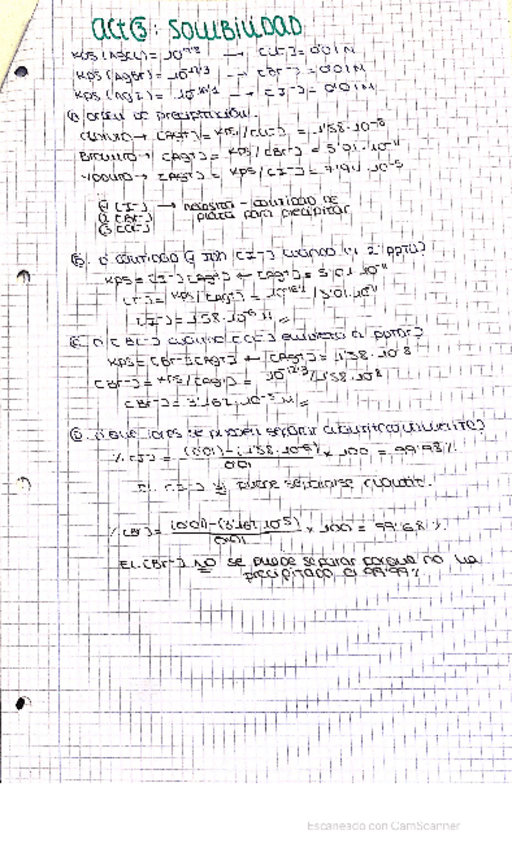 ACT③: SOLUBILIDAD
Kps (AgCl) = 10⁻⁹'⁸ → [Cl⁻] = 0'01 M
Kps (AgBr) = 10⁻¹²'³ → [Br⁻] = 0'01 M
Kps (AgI) = → [I⁻] = 0'01 M
a) orden de precipitación.
Cloruro → [Ag+] = Kps / [Cl⁻] = 1'58 · 10⁻⁸
Bromuro → [Ag+] = Kps / [Br⁻] = 5'01 · 10⁻¹¹
Yoduro → [Ag+] = Kps / [I⁻] =
① [I⁻] → necesitan - cantidad de
② [Br⁻] plata para precipitar
③ [Cl⁻]
b) [I⁻] cuando 2º pptu?
Kps = [I⁻] [Ag+] ← [Ag+] = 5'01 · 10⁻¹¹
[I⁻] = Kps / [Ag+] = / 5'01 · 10⁻¹¹
[I⁻] = 1'58 · 10⁻⁶ M
c) [Br⁻] cuando [Cl⁻] empieza a pptar?
Kps = [Br⁻] [Ag+] ← [Ag+] = 1'58 · 10⁻⁸
[Br⁻] = Kps / [Ag+] = 10⁻¹²'³ / 1'58 · 10⁻⁸
[Br⁻] = 3'162 · 10⁻⁵ M
d) ¿Que iones se pueden separar cuantitativamente?
% [I⁻] = (0'01) - (1'58 · 10⁻⁶) / 0'01 × 100 = 99'98 %
El [I⁻] sí puede separarse cuantit.
% [Br⁻] = (0'01) - (3'162 · 10⁻⁵) / 0'01 × 100 = 99'68 %
El [Br⁻] NO se puede separar porque no ha
precipitado el 99'99 %
Escaneado con CamScanner